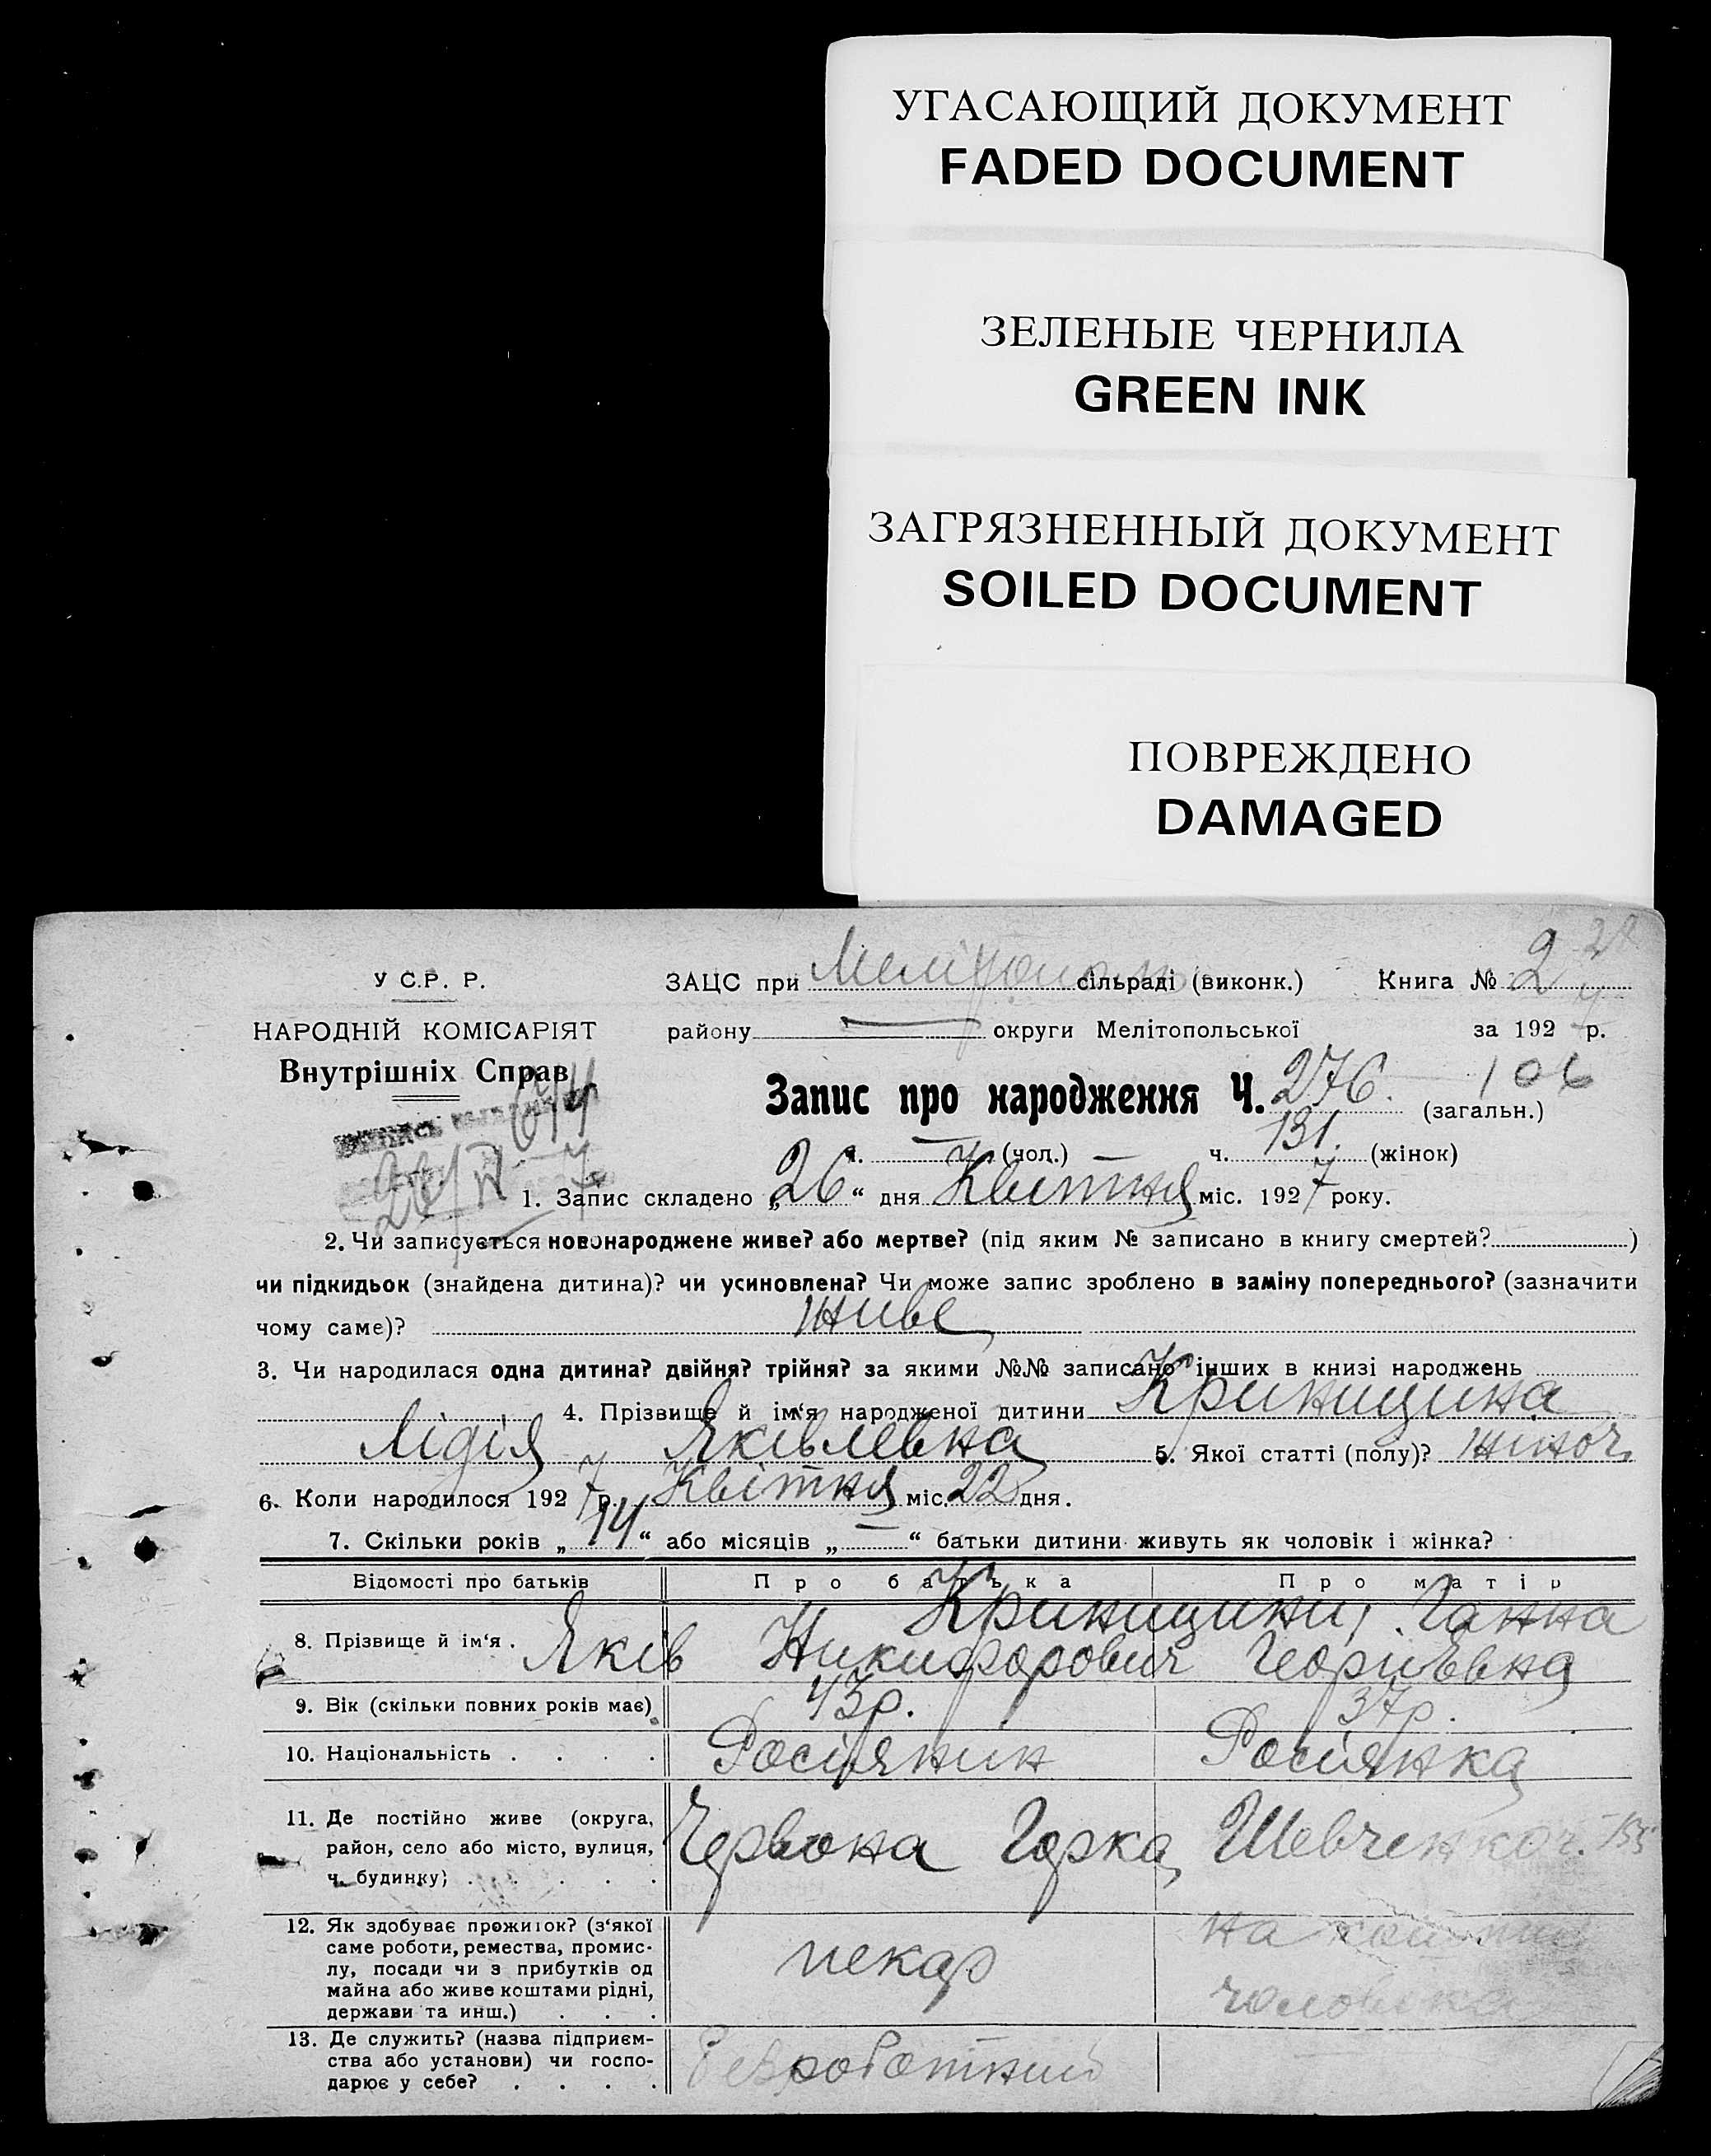 УГАСАЮЩИЙ ДОКУМЕНТ
FADED DOCUMENT
ЗЕЛЕНЫЕ ЧЕРНИЛА
GREEN INK
ЗАГРЯЗНЕННЫЙ ДОКУМЕНТ
SOILED DOCUMENT
ПОВРЕЖДЕНО
DAMAGED
У С.Р. Р.
НАРОДНІЙ КОМІСАРІЯТ
Внутрішніх Справ
ЗАЦС при сільраді (виконк.) Книга № 2
району округи Мелітопольської за 1927 р.
Запис про народження Ч. 276. 106
(загальн.)
ч. (чол.) ч. 131. (жінок)
1. Запис складено „26“ дня Квітня міс. 1927 року.
2. Чи записується новонароджене живе? або мертве? (під яким № записано в книгу смертей? )
чи підкидьок (знайдена дитина)? чи усиновлена? Чи може запис зроблено в заміну попереднього? (зазначити
чому саме)? живе
3. Чи народилася одна дитина? двійня? трійня? за якими №№ записано інших в книзі народжень
4. Прізвище й ім‘я народженої дитини Криницина
Лідія Яківлевна 5. Якої статті (полу)? жіноч.
6. Коли народилося 1927 р. Квітня міс. 22 дня.
7. Скільки років „14“ або місяців „—“ батьки дитини живуть як чоловік і жінка?
Відомості про батьків Про батька Про матір
Криницини, Ганна
8. Прізвище й ім‘я . Яків Никифорович Георгіевна
9. Вік (скільки повних років має) 43р. 37р.
10. Національність . . . . Росіянин Росіянка
11. Де постійно живе (округа,
район, село або місто, вулиця,
ч. будинку) . . . . .
Червона Горка, Шевченко ч. 155
12. Як здобуває прожиток? (з‘якої
саме роботи, ремества, промис-
лу, посади чи з прибутків од
майна або живе коштами рідні,
держави та инш.) . . .
пекар
на
чоловіка
13. Де служить? (назва підприєм-
ства або установи) чи госпо-
дарює у себе? . . . .
Безроботний